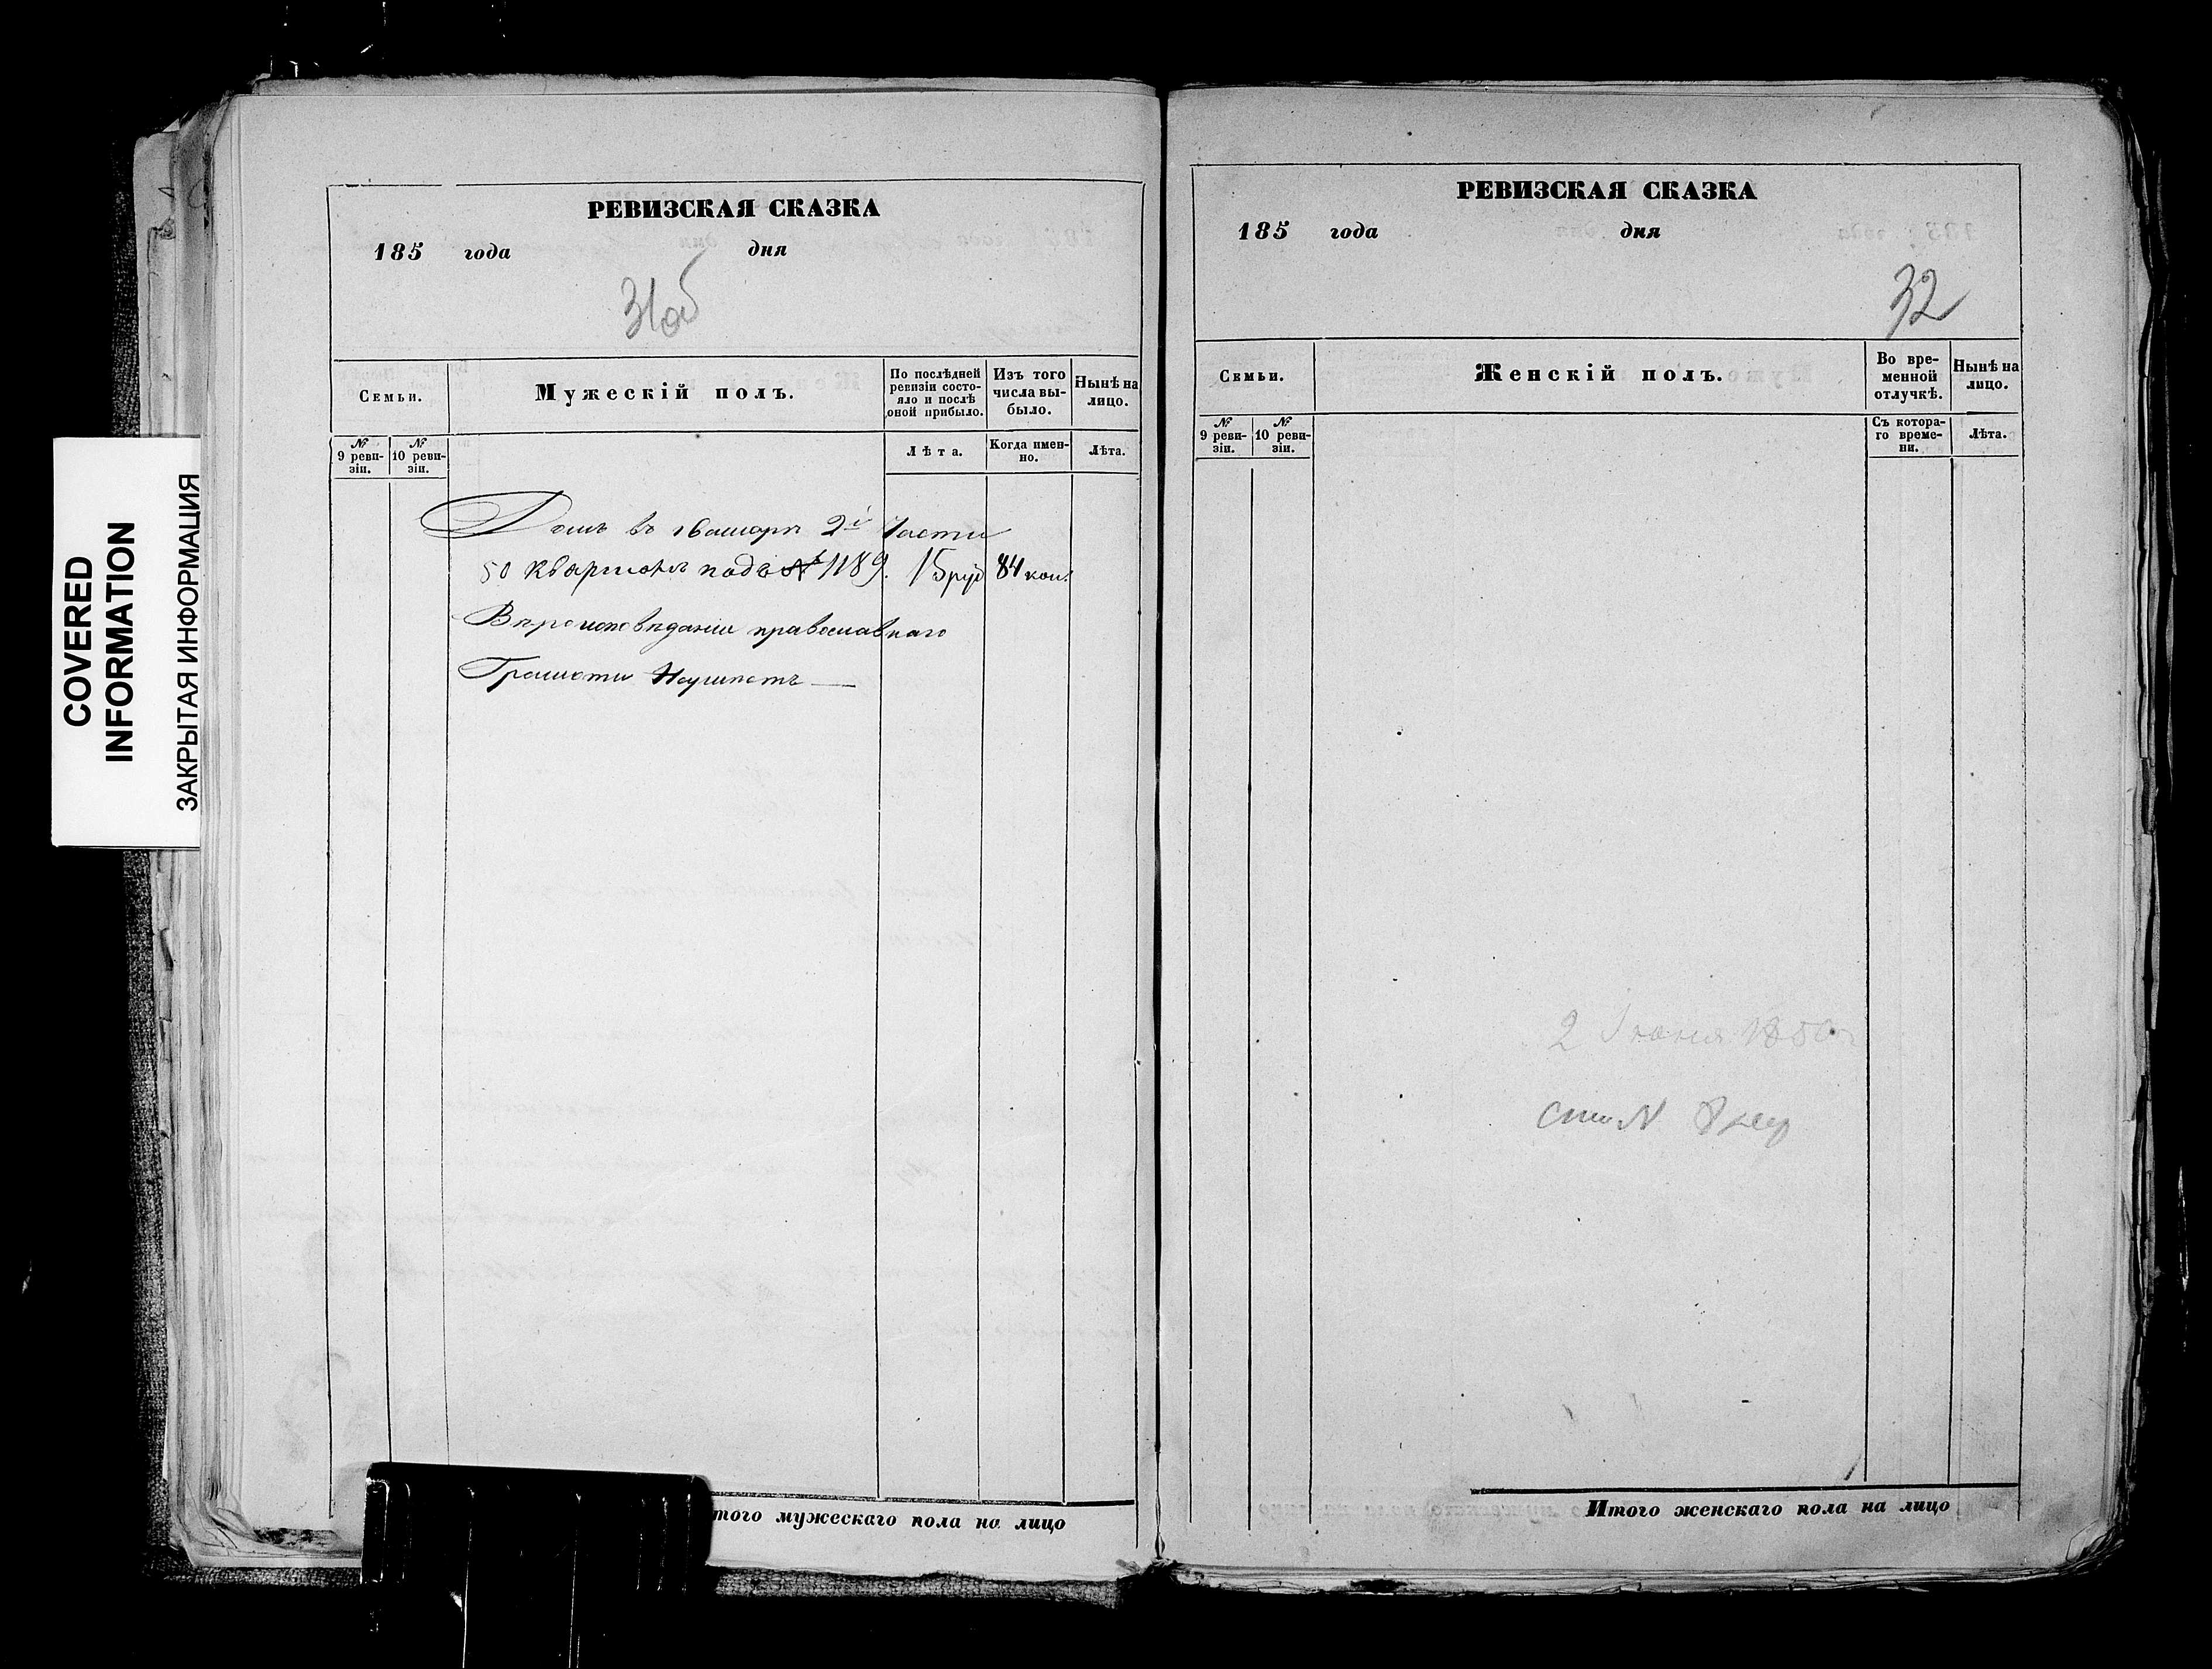 COVERED
INFORMATION
ЗАКРЫТАЯ ИНФОРМАЦИЯ
РЕВИЗСКАЯ СКАЗКА
185 года дня
31об
Семьи.
Мужескій полъ.
По послѣдней
ревизіи состо-
яло и послѣ
оной прибыло.
Изъ того
числа вы-
было.
Нынѣ на
лицо.
№
9 реви-
зіи.
№
10 реви-
зіи.
Лѣта.
Когда имен-
но.
Лѣта.
Домъ въ 2й части
50 квартала подъ № 1189. 15 руб 84 коп.
Вѣроисповѣданіи православнаго
Грамоти Неумѣетъ —
того мужескаго пола на лицо
РЕВИЗСКАЯ СКАЗКА
185 года дня
32
Семьи.
Женскій полъ.
Во вре-
менной
отлучкѣ.
Нынѣ на
лицо.
№
9 реви-
зіи.
№
10 реви-
зіи.
Съ котора-
го време-
ни.
Лѣта.
Итого женскаго пола на лицо